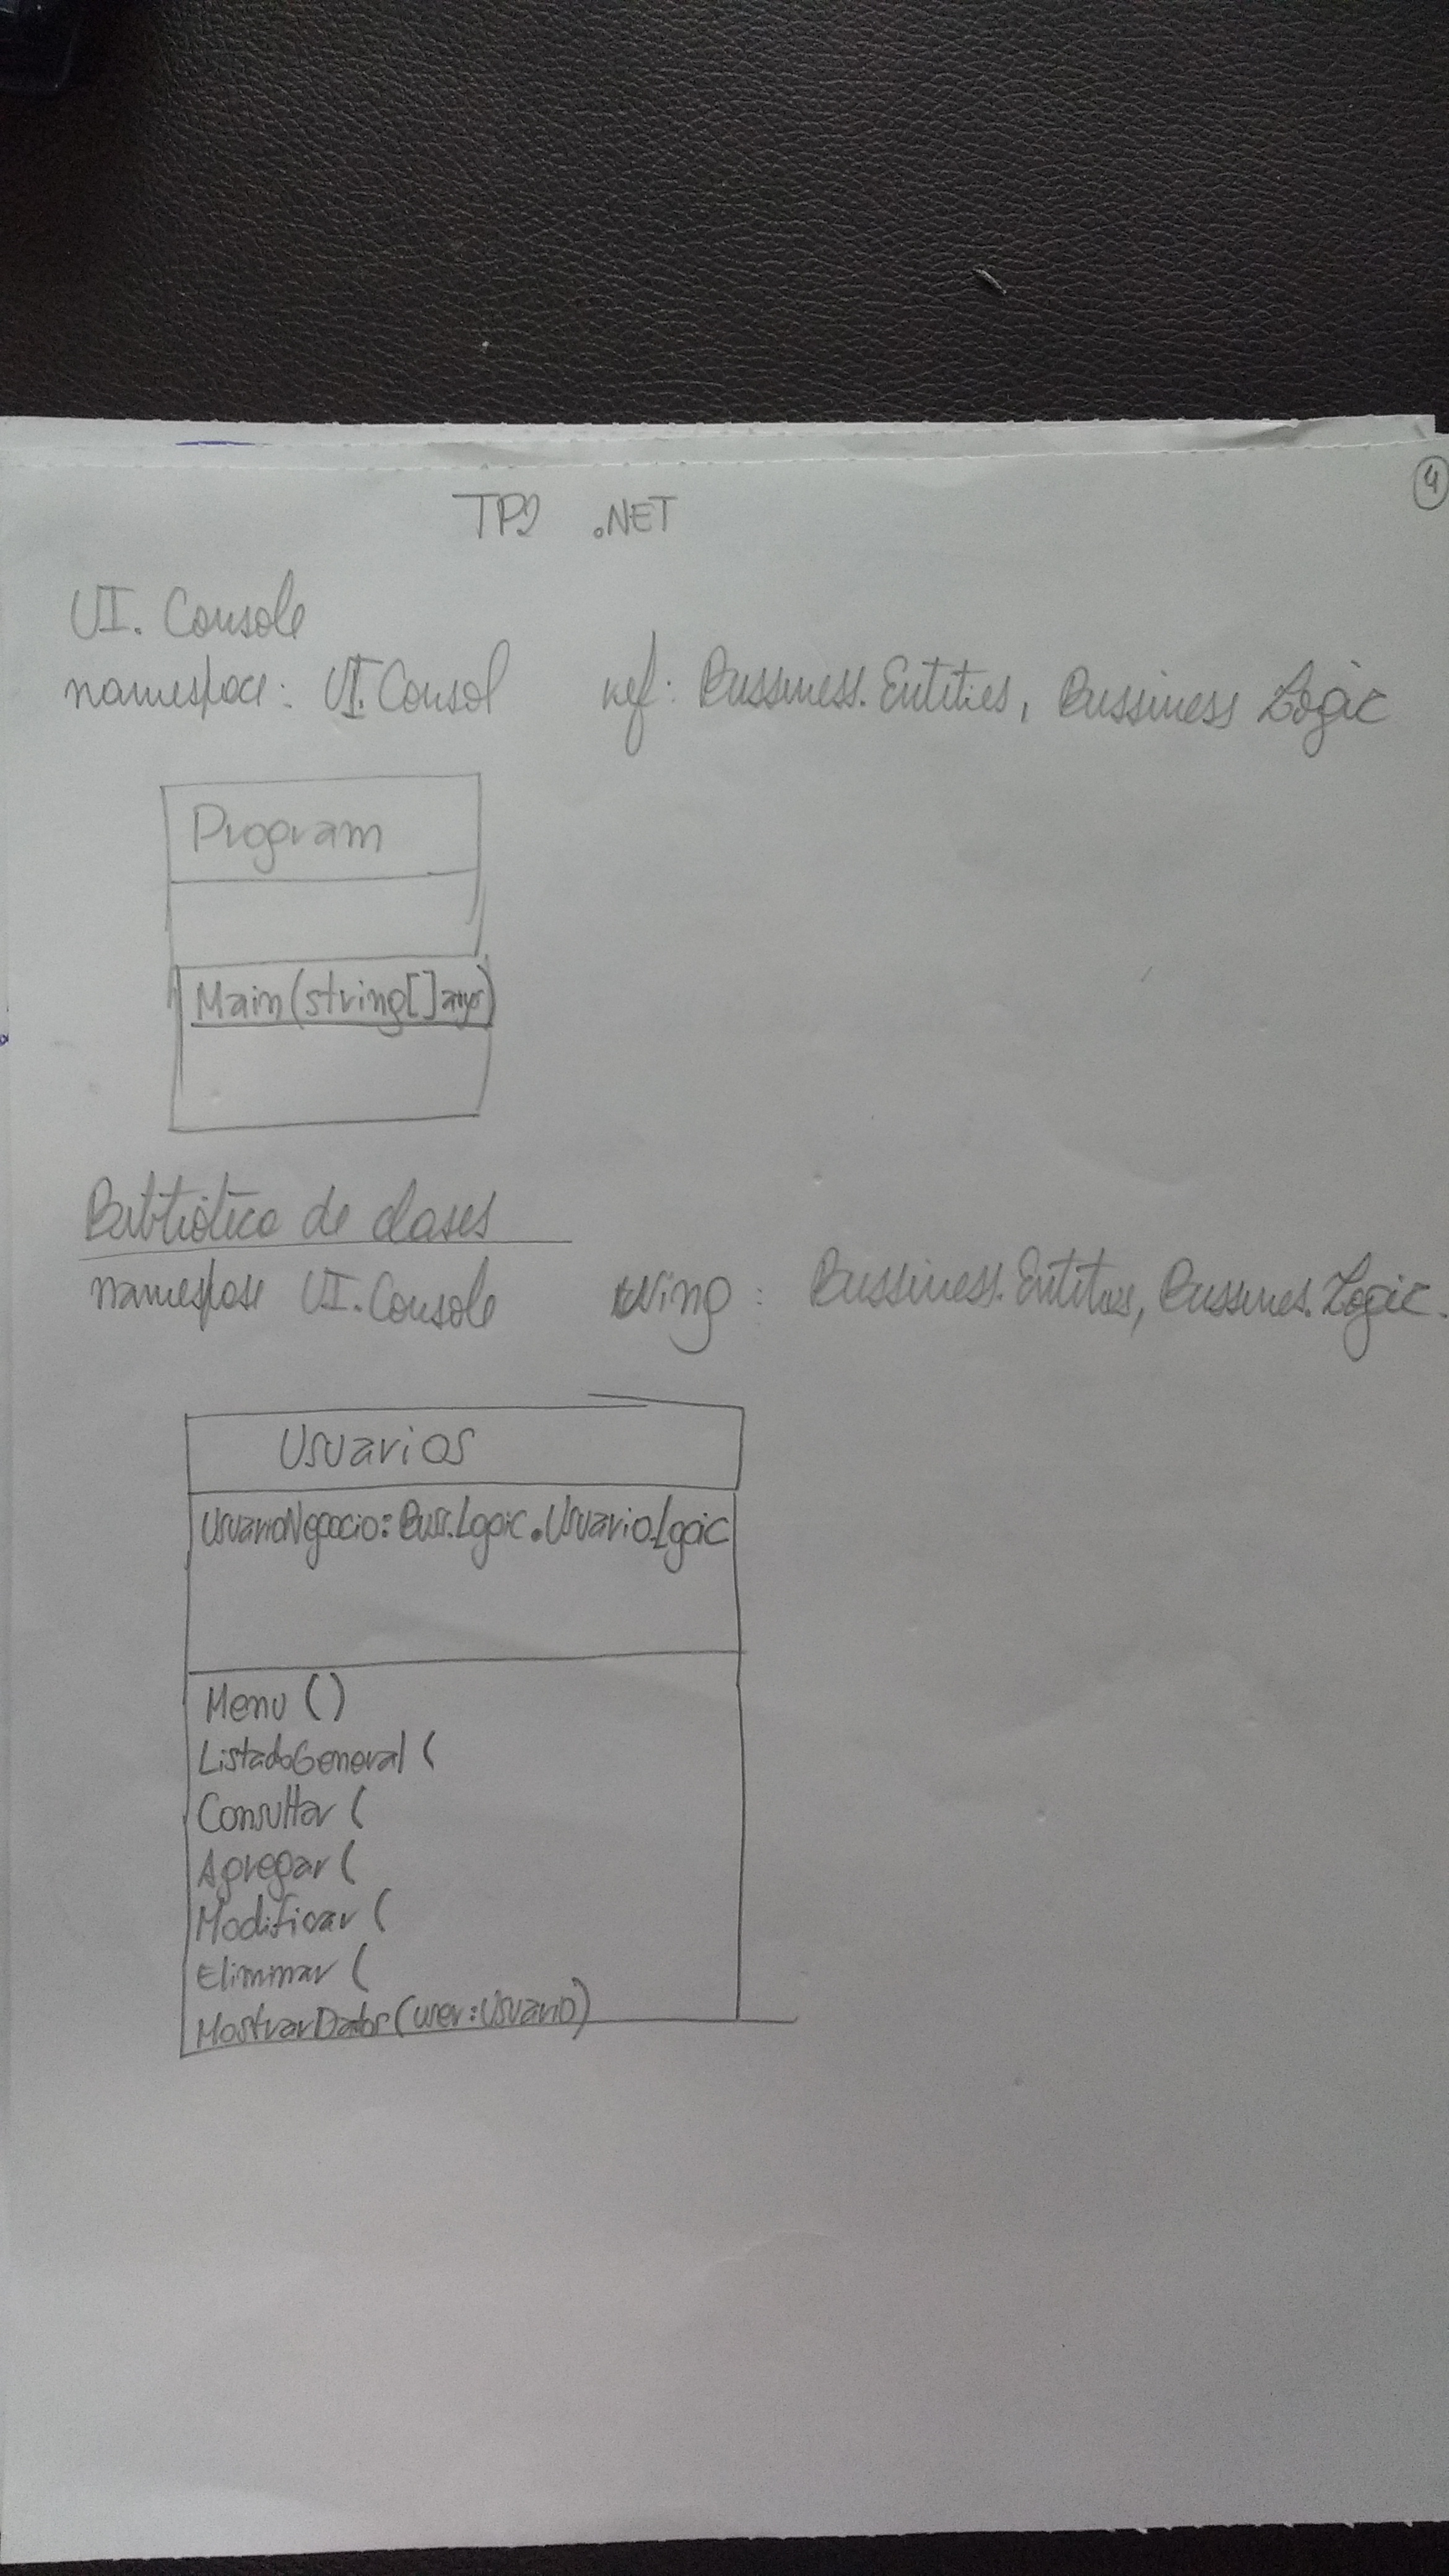 TP2 .NET
4
UI. Console
namespace: UI.Consol ref: Bussiness.Entities, Bussiness Logic
Program
Main(string[]args)
Biblioteca de clases
namespase UI.Console using : Bussiness.Entities, Bussines.Logic.
Usuarios
UsuarioNegocio: Buss.Logic.UsuarioLogic
Menu ()
ListadoGeneral (
Consultar (
Agregar (
Modificar (
Eliminar (
MostrarDatos(user:Usuario)